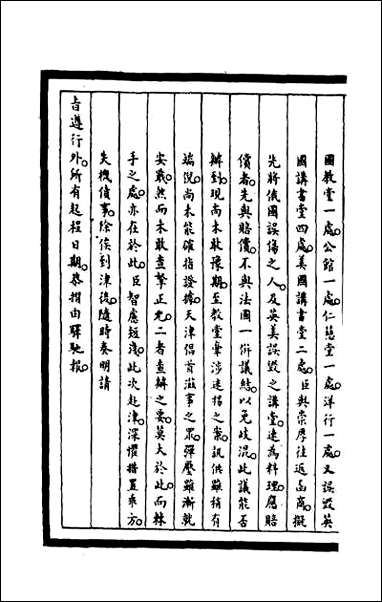 國教堂一處公館一處仁慈堂一處洋行一處又誤毀英
國講書堂四處美國講書堂二處臣與崇厚往返函商擬
先將俄國誤傷之人及英美誤毀之講堂速為料理應賠
償者先與賠償不與法國一併議結以免歧混此議能否
辦到現尚未敢豫期至教堂牽涉迷拐之案訊供雖稍有
端倪尚未能確指證據天津倡首滋事之眾彈壓雖漸就
安戢然而未敢查拏正兇二者查辦之要莫大於此而棘
手之處亦在於此臣智慮短淺此次赴津深懼措置乖方
失機僨事除俟到津後隨時奏明請
旨遵行外所有起程日期恭摺由驛馳報